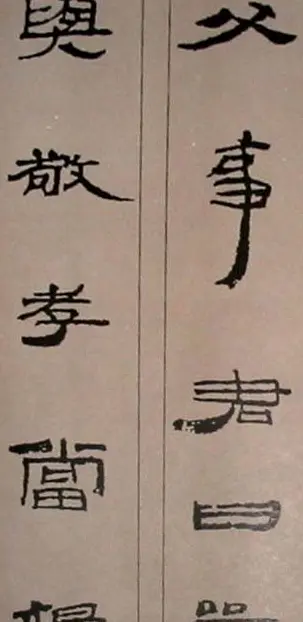 父事君曰
與敬孝當